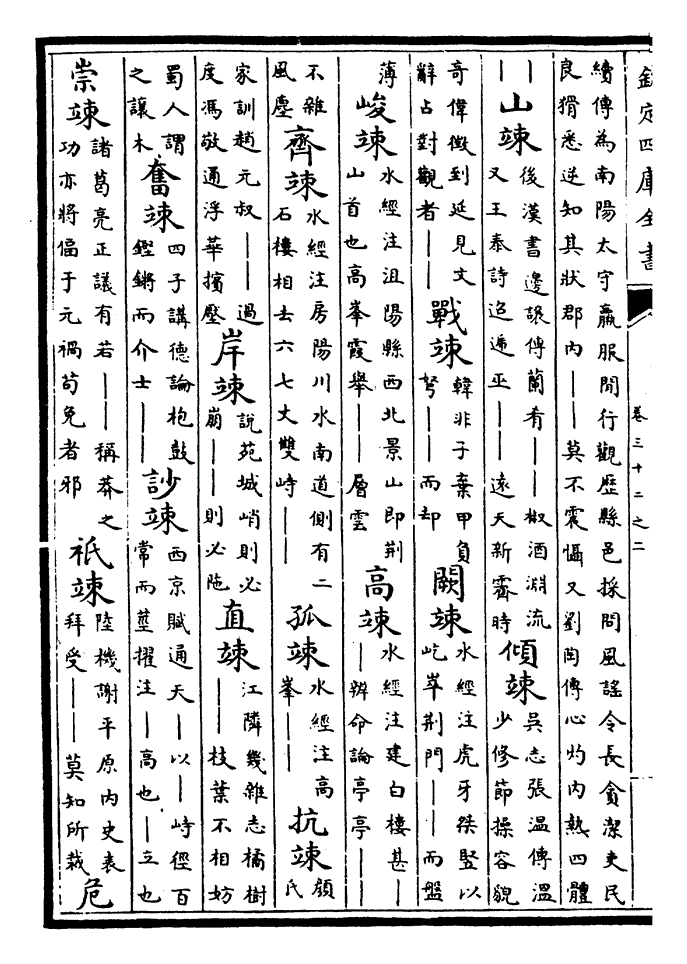 欽定四庫全書 卷三十二之二
續傳為南陽太守羸服閒行觀歷縣邑採問風謠令長貪潔吏民良猾悉逆知其狀郡內——莫不震懾又劉陶傳心灼內熱四體
——山竦後漢書邊讓傳蘭肴——椒酒淵流又王泰詩迢遞巫——遠天新霽時傾竦吳志張溫傳溫少修節操容貌
奇偉徵到延見文辭占對觀者——戰竦韓非子棄甲負弩——而却闕竦水經注虎牙桀豎以屹崒荊門——而盤
薄峻竦水經注沮陽縣西北景山即荊山首也高峯霞舉——層雲高竦水經注建白樓甚——辨命論亭亭——
不雜風塵齊竦水經注房陽川水南道側有二石樓相去六七丈雙峙——孤竦水經注高峯——抗竦顏氏
家訓趙元叔——過度馮敬通浮華擯壓岸竦說苑城峭則必崩——則必阤直竦江隣幾雜志橘樹——枝葉不相妨
蜀人謂之讓木奮竦四子講德論枹鼓鏗鏘而介士——訬竦西京賦通天—以—峙徑百常而莖擢注—高也—立也
崇竦諸葛亮正議有若——稱莽之功亦將偪于元禍苟免者邪祇竦陸機謝平原內史表拜受——莫知所裁危